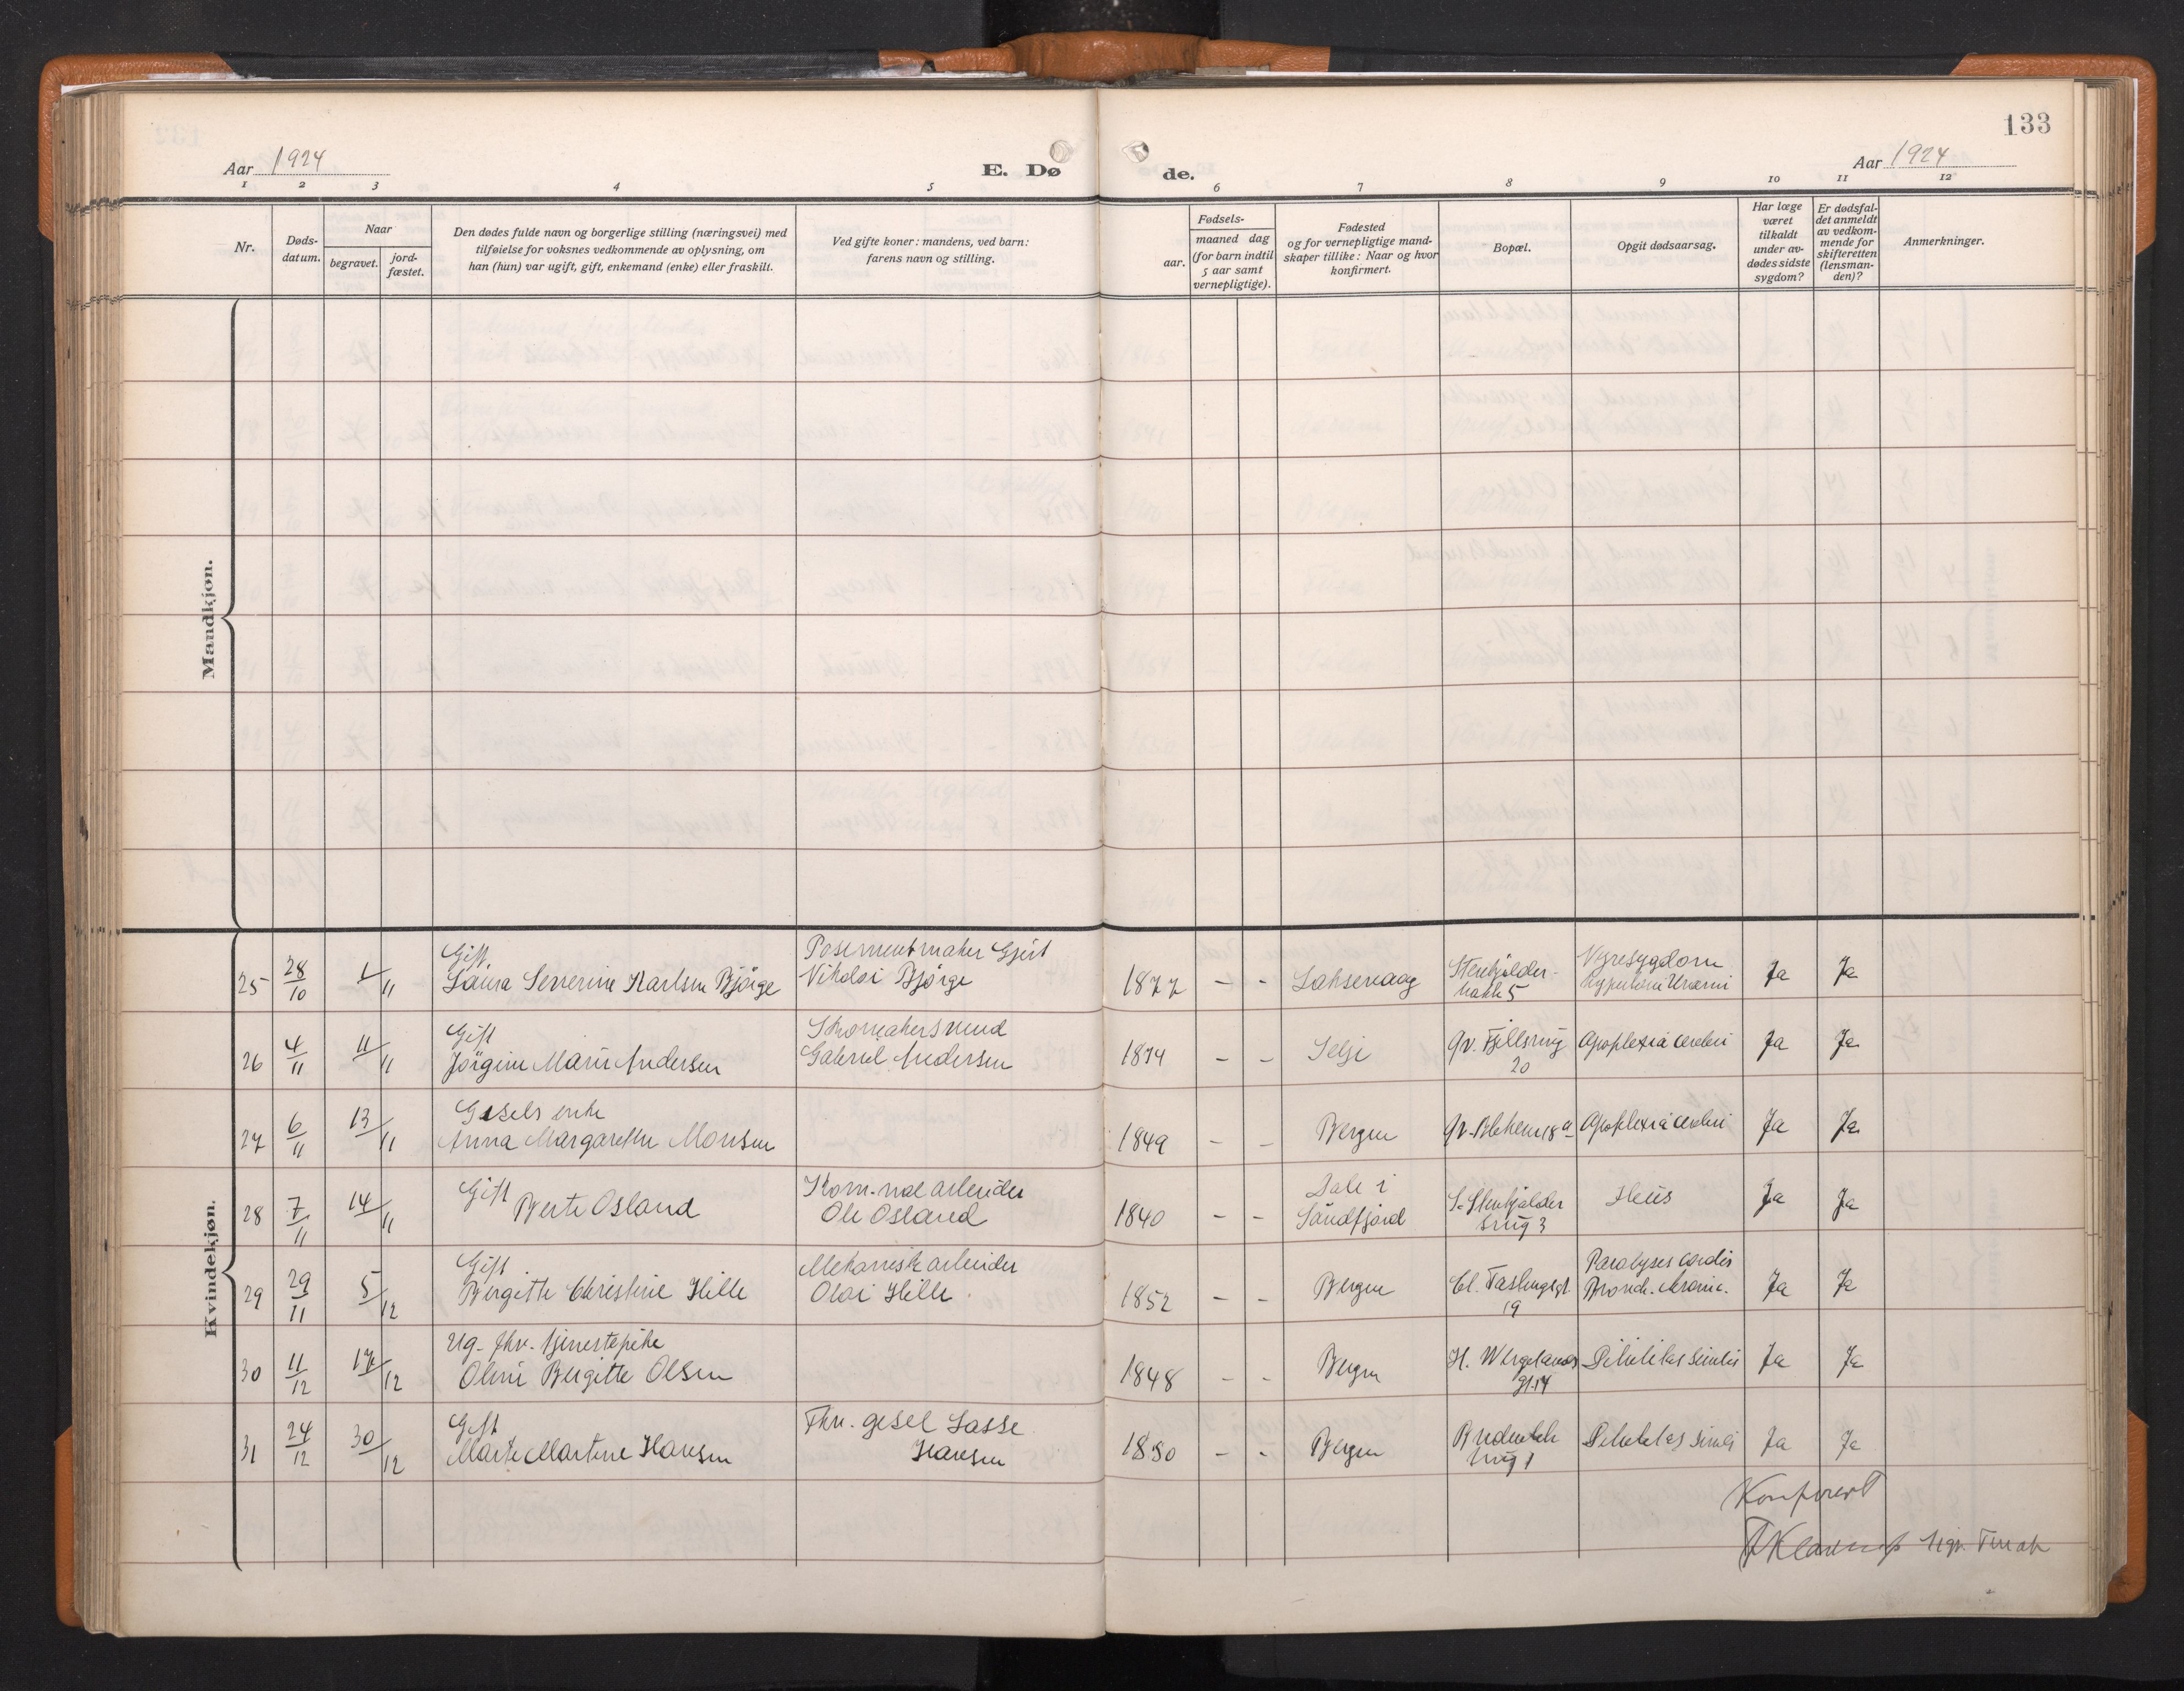 133
Aar 1924
E. Dø
de.
Aar 1924
1 2 3 4 5 6 7 8 9 10 11 12
Nr.
Døds-
datum.
Naar
begravet.
jord-
fæstet.
Den dødes fulde navn og borgerlige stilling (næringsvei) med
tilføielse for voksnes vedkommende av oplysning, om
han (hun) var ugift, gift, enkemand (enke) eller fraskilt.
Ved gifte koner: mandens, ved barn:
farens navn og stilling.
Fødsels-
aar.
maaned dag
(for barn indtil
5 aar samt
vernepligtige).
Fødested
og for vernepligtige mand-
skaper tillike: Naar og hvor
konfirmert.
Bopæl.
Opgit dødsaarsag.
Har læge
været
tilkaldt
under av-
dødes sidste
sygdom?
Er dødsfal-
det anmeldt
av vedkom-
mende for
skifteretten
(lensman-
den)?
Anmerkninger.
Mandkjøn.
Kvindekjøn.
25 28/10 1/11
Gift
Laura Severine Karlsen Bjørge
Posementmaker Gjert
Nikolai Bjørge
1877 - - Laksevaag
Stenkjelder-
bakk 5
Nyresygdom
Uræmi
Ja Ja
26 4/11 11/11
Gift
Jörgine Marie Andersen
Skomakersvend
Gabriel Andersen
1874 - - Selje
Øv. Fjellsmug
20
Apoplexia cerebri
Ja Ja
27 6/11 13/11
Gesels enke
Anna Margarethe Monsen
1849 - - Bergen
Øv. Blekevei 18 a
Apoplexia cerebri
Ja Ja
28 7/11 14/11
Gift
Berte Osland
Kom-nalarbeider
Ole Osland
1840 - -
Dale i
Söndfjord
L. Stenkjelder
smug 3
Ileus
Ja Ja
29 29/11 5/12
Gift
Birgitte Christine Hille
Mekanisk arbeider
Olai Hille
1852 - - Bergen
Cl. Fastingsgt.
19
Paralyses cordis
Bronch. kronic.
Ja Ja
30 11/12 17/12
Ug. fhv. tjenestepike
Oline Bergitte Olsen
1848 - - Bergen
H. Wergelands
gt. 14
Debilitas senilis
Ja Ja
31 24/12 30/12
Gift
Marte Martine Hansen
Fhv. gesel Lasse
Hansen
1830 - - Bergen
smug 1
Debilitas senilis
Ja Ja
Konferert